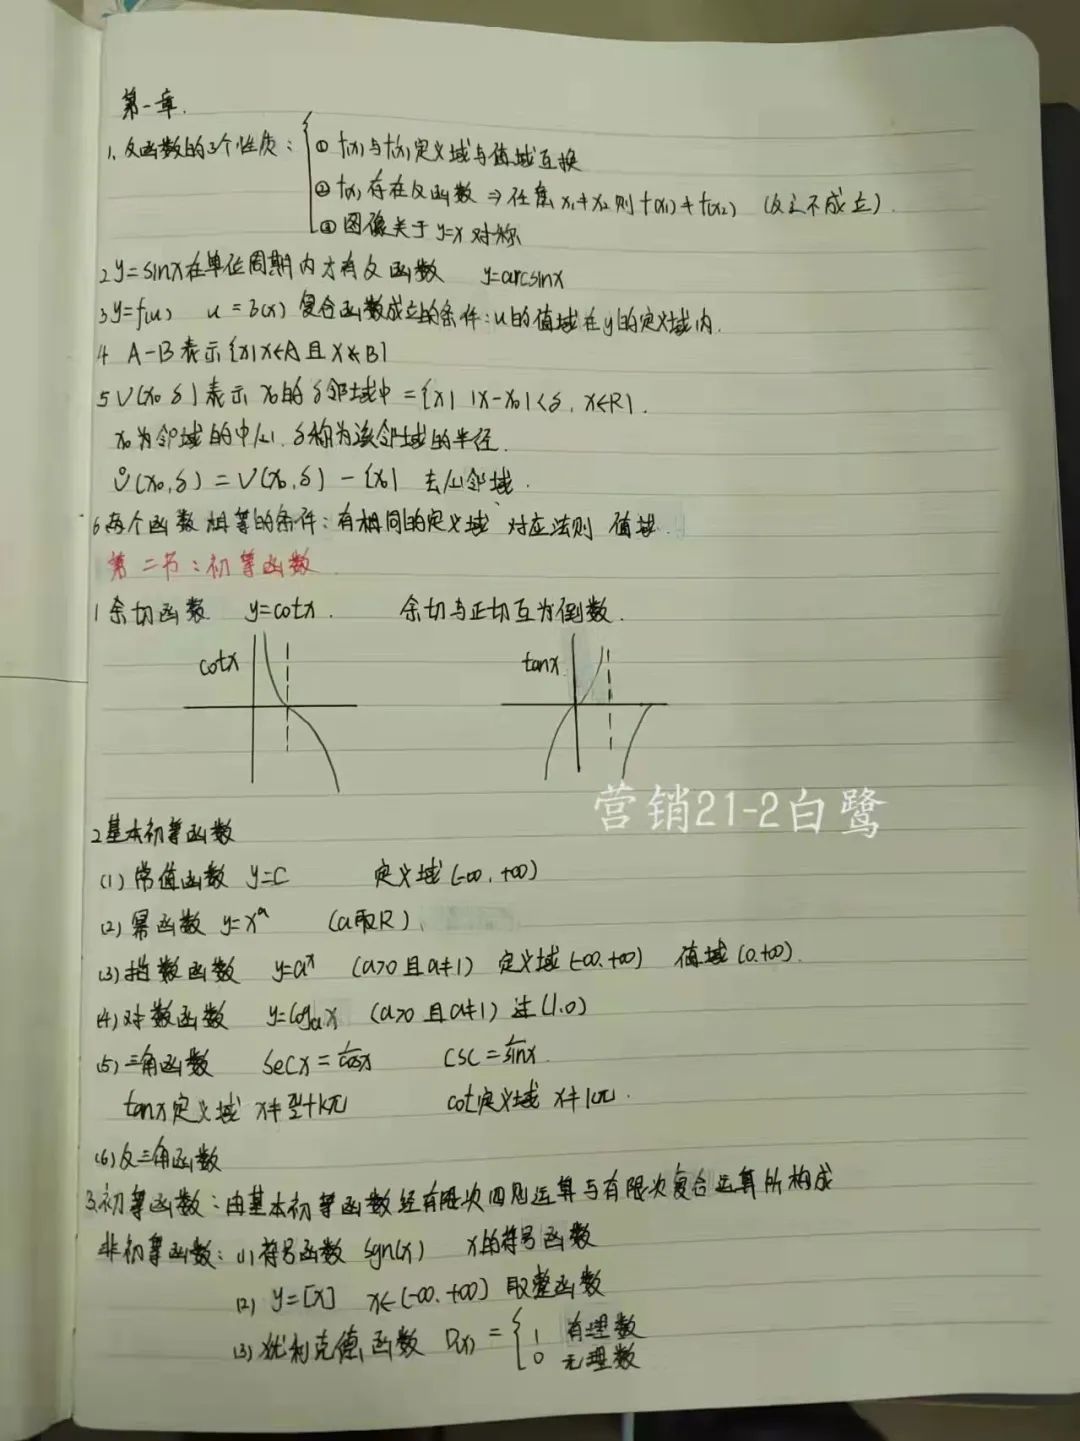 第一章.
1. 反函数的3个性质: ① f(x)与f(x)定义域与值域互换
② f(x)存在反函数 ⇒ 任意 x₁≠x₂ 则 f(x₁)≠f(x₂) (反之不成立).
③ 图像关于 y=x 对称
2 y=sinx在单位周期内才有反函数 y=arcsinx
3 y=f(u) u=g(x) 复合函数成立的条件:u的值域在y的定义域内.
4 A-B 表示{x|x∈A且x∉B}
5 U(x₀ δ)表示 x₀的δ邻域中={x| |x-x₀|<δ, x∈R}.
x₀为邻域的中心, δ称为该邻域的半径.
Ů(x₀,δ)=U(x₀,δ)-{x₀} 去心邻域.
6 两个函数相等的条件:有相同的定义域、对应法则 值域.
第二节:初等函数
1 余切函数 y=cotx. 余切与正切互为倒数.
cotx tanx
营销21-2白鹭
2 基本初等函数
(1) 常值函数 y=C 定义域(-∞,+∞)
(2) 幂函数 y=xᵃ (a取R)
(3) 指数函数 y=aˣ (a>0且a≠1) 定义域(-∞,+∞) 值域(0,+∞).
(4) 对数函数 y=logₐx (a>0且a≠1) 过(1.0)
(5) 三角函数 secx=1/cosx csc=1/sinx.
tanx定义域 x≠π/2+kπ cot定义域 x≠kπ.
(6) 反三角函数
3. 初等函数:由基本初等函数经有限次四则运算与有限次复合运算所构成
非初等函数: (1) 符号函数 sgn(x) x的符号函数
(2) y=[x] x∈(-∞,+∞) 取整函数
(3) 狄利克德函数 D(x)={1 有理数
0 无理数